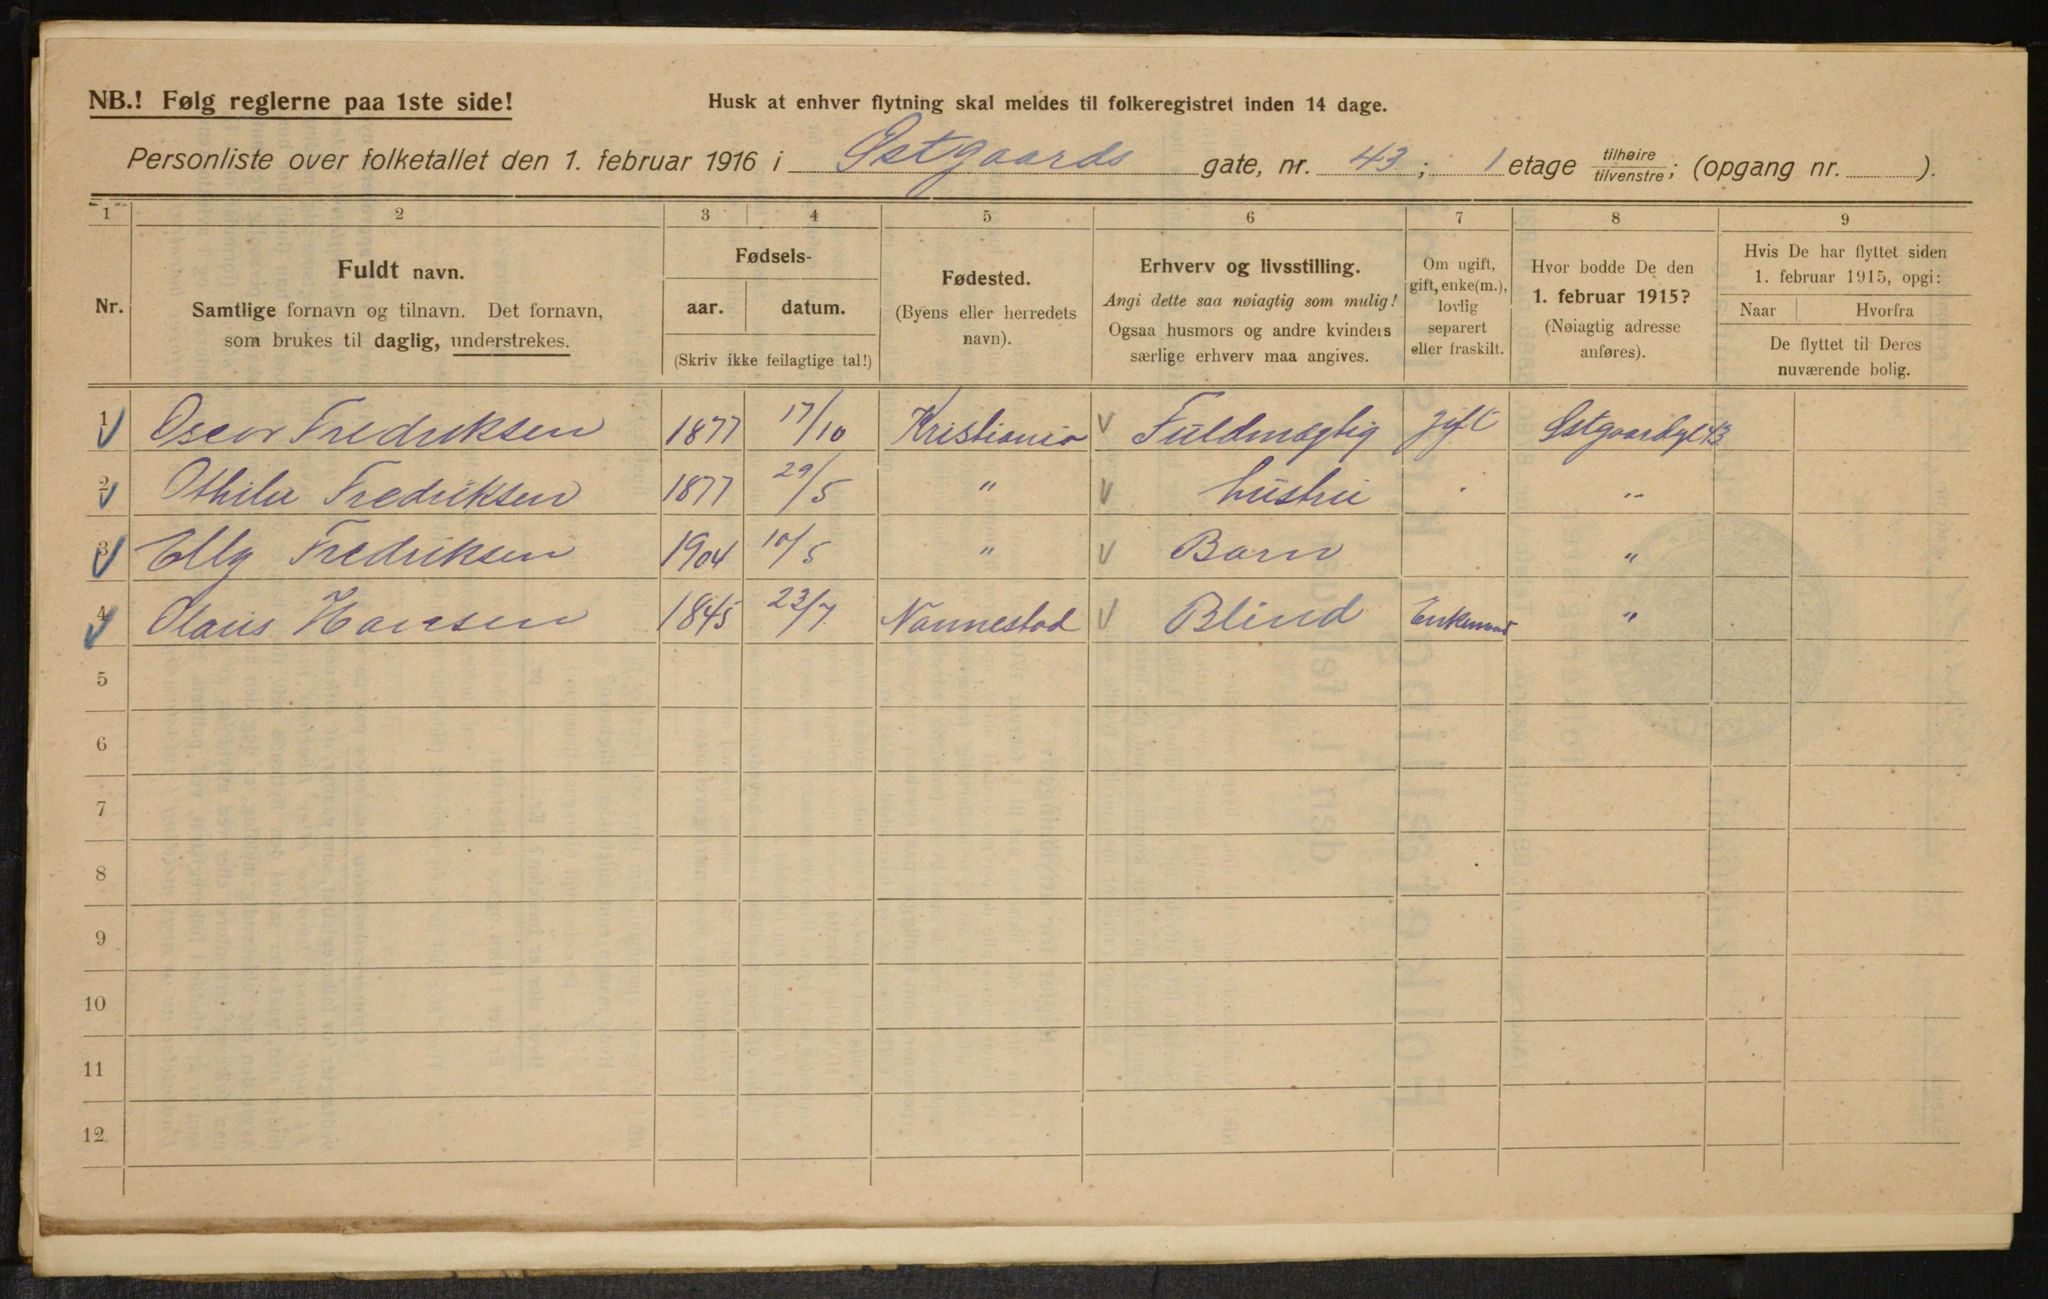 NB.! Følg reglerne paa 1ste side!
Husk at enhver flytning skal meldes til folkeregistret inden 14 dage.
Personliste over folketallet den 1. februar 1916 i Østgaards gate, nr. 43; 1 etage tilhøire/tilvenstre; (opgang nr. ).
1 2 3 4 5 6 7 8 9
Nr.
Fuldt navn.
Samtlige fornavn og tilnavn. Det fornavn,
som brukes til daglig, understrekes.
Fødsels-
aar. datum.
(Skriv ikke feilagtige tal!)
Fødested.
(Byens eller herredets
navn).
Erhverv og livsstilling.
Angi dette saa nøiagtig som mulig!
Ogsaa husmors og andre kvinders
særlige erhverv maa angives.
Om ugift,
gift, enke(m.),
lovlig
separert
eller fraskilt.
Hvor bodde De den
1. februar 1915?
(Nøiagtig adresse
anføres).
Hvis De har flyttet siden
1. februar 1915, opgi:
Naar Hvorfra
De flyttet til Deres
nuværende bolig.
1 Oscar Fredriksen 1877 17/10 Kristiania Fuldmægtig gift Østgaardsgt 43
2 Othilie Fredriksen 1877 29/5 " hustru " "
3 Elly Fredriksen 1904 10/5 " Barn "
4 Olaus Hansen 1845 23/7 Nannestad Blind Enkemand "
5
6
7
8
9
10
11
12